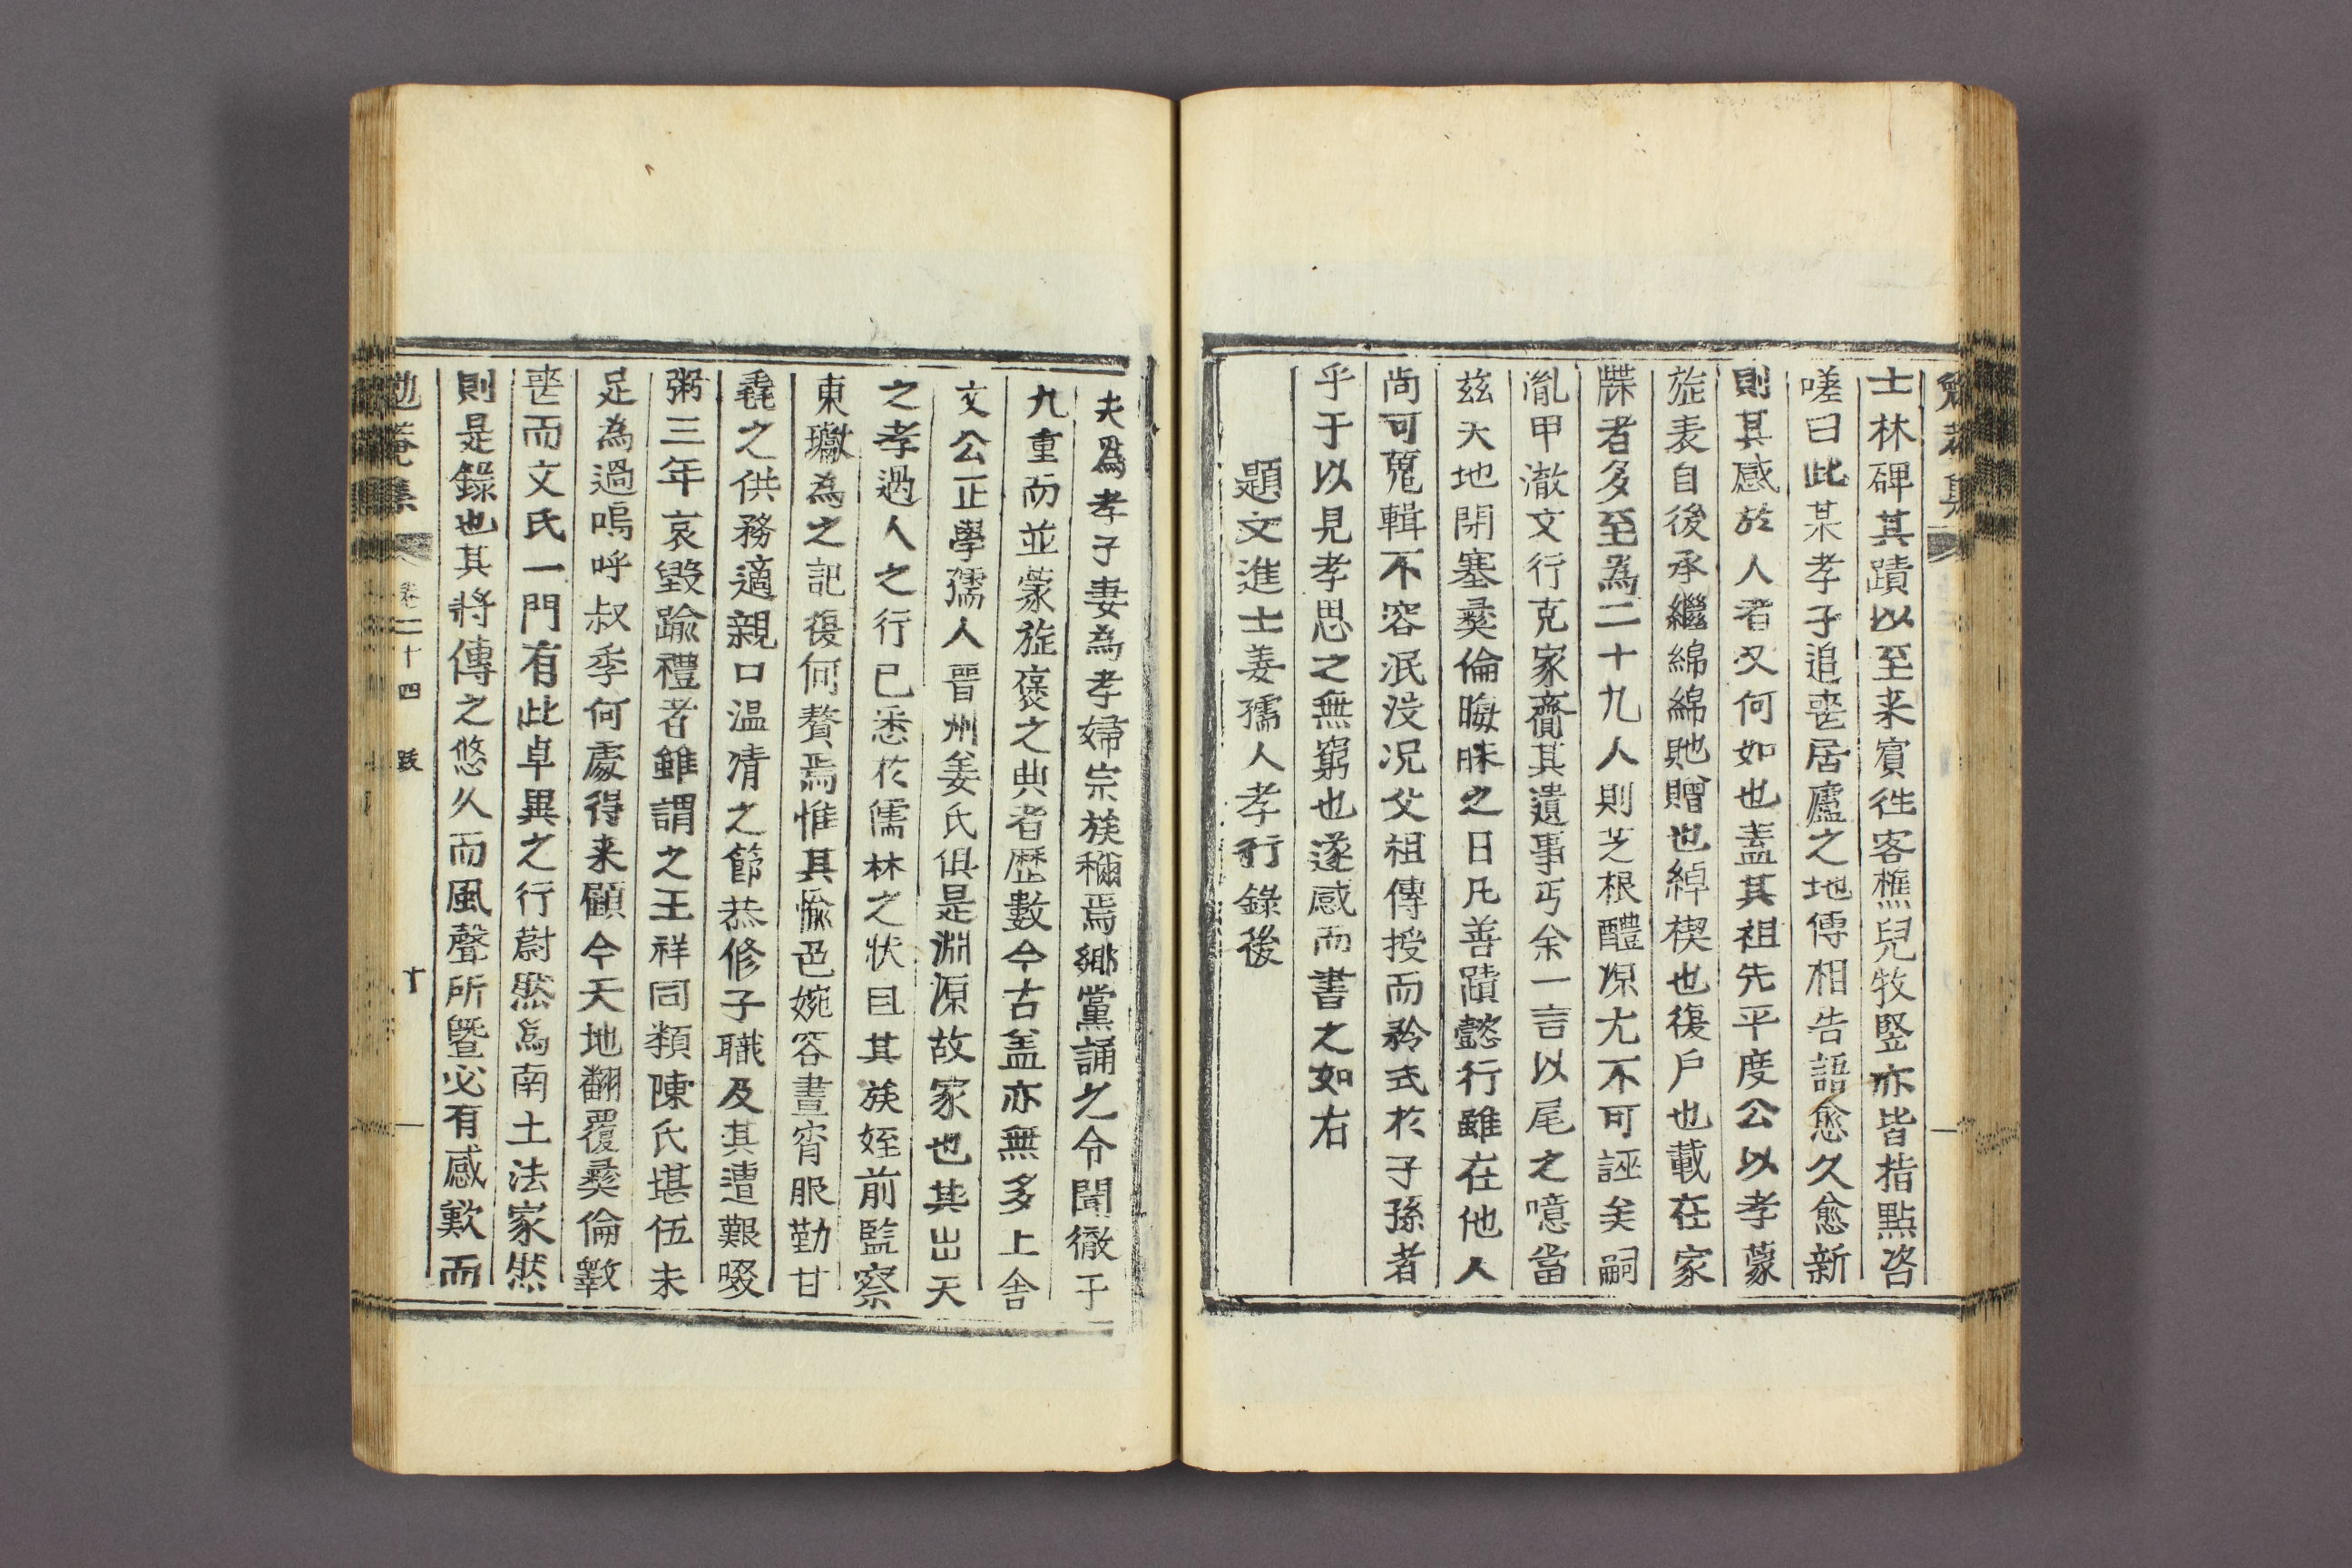 士林碑其蹟以至来賓徃客樵兒牧竪亦皆指點咨
嗟曰此某孝子追喪居廬之地傳相告語愈久愈新
則其感於人者又何如也盖其祖先平度公以孝蒙
㫌表自後承繼綿綿貤贈也綽楔也復戶也載在家
牒者多至爲二十九人則芝根醴源尤不可誣矣嗣
胤甲澈文行克家齎其遺事丐余一言以尾之噫當
兹天地閉塞彛倫晦昧之日凡善蹟懿行雖在他人
尚可蒐輯不容泯沒况父祖傳授而矜式於子孫者
乎于以見孝思之無窮也遂感而書之如右
題文進士姜孺人孝行錄後
夫爲孝子妻為孝婦宗族稱焉鄉黨誦之令聞徹于
九重而並蒙㫌褒之典者歷數今古盖亦無多上舍
文公正學孺人晋州姜氏俱是淵源故家也其出天
之孝過人之行已悉於儒林之狀且其族姪前監察
東瓛為之記復何贅焉惟其愉色婉容晝宵服勤甘
毳之供務適親口温凊之節恭修子職及其遭艱啜
粥三年哀毀踰禮者雖謂之王祥同類陳氏堪伍未
足為過嗚呼叔季何處得来顧今天地翻覆彛倫斁
喪而文氏一門有此卓異之行蔚然爲南土法家然
則是錄也其將傳之悠久而風聲所曁必有感歎而
勉菴集 卷二十四 跋 十